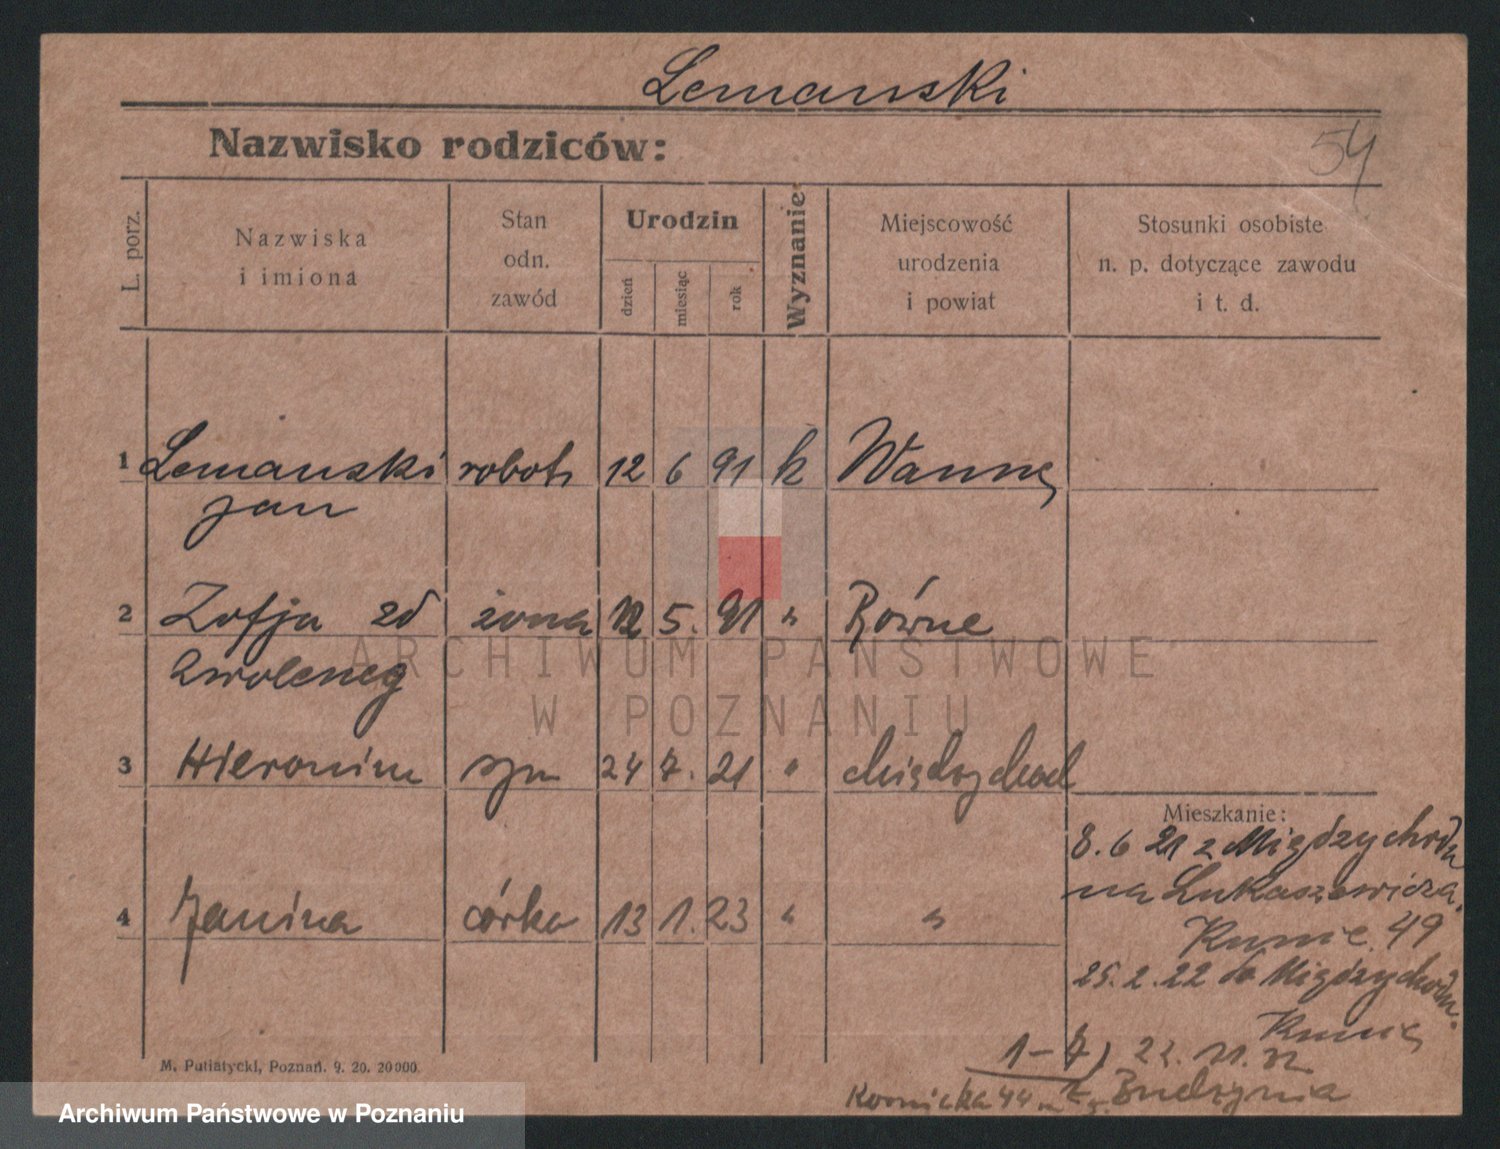 Lemanski
Nazwisko rodziców:
54
L. porz.
Nazwiska
i imiona
Stan
odn.
zawód
Urodzin
dzień
miesiąc
rok
Wyznanie
Miejscowość
urodzenia
i powiat
Stosunki osobiste
n. p. dotyczące zawodu
i t. d.
1 Lemanski robotn 12 6 91 k Wanne
Jan
2 Zofja zd żona 12 5. 91 " Równe
3 Hieronim syn 24 7. 21 " Międzychod
4 Janina córka 13 1. 23 " "
Mieszkanie:
8. 6 21 z Międzychodu
na Łukaszewicza
49
25. 2. 22 do Międzychodu
1-7)
Kornicka 44 Budzynia
M. Putiatycki, Poznań. 9. 20. 20000.
ARCHIWUM PAŃSTWOWE
W POZNANIU
Archiwum Państwowe w Poznaniu